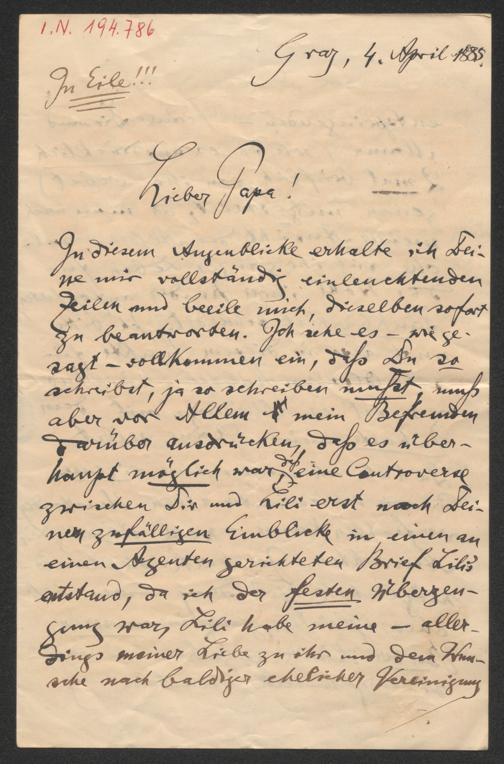 I.N. 194.786
Graz, 4. April 1885.
In Eile!!!
Lieber Papa!
In diesem Augenblicke erhalte ich Dei-
ne mir vollständig einleuchtenden
Zeilen und beeile mich, dieselben sofort
zu beantworten. Ich sehe es – wie ge-
sagt – vollkommen ein, daß Du so
schreibst, ja so schreiben mußt, muß
aber vor Allem mein Befremden
darüber ausdrücken, daß es über-
haupt möglich war, daß eine Controverse
zwischen Dir und Lili erst nach Dei-
nem zufälligen Einblicke in einen an
einen Agenten gerichteten Brief Lili's
entstand, da ich der festen Überzeu-
gung war, Lili habe meine – aller-
dings meiner Liebe zu ihr und dem Wun-
sche nach baldiger ehelicher Vereinigung